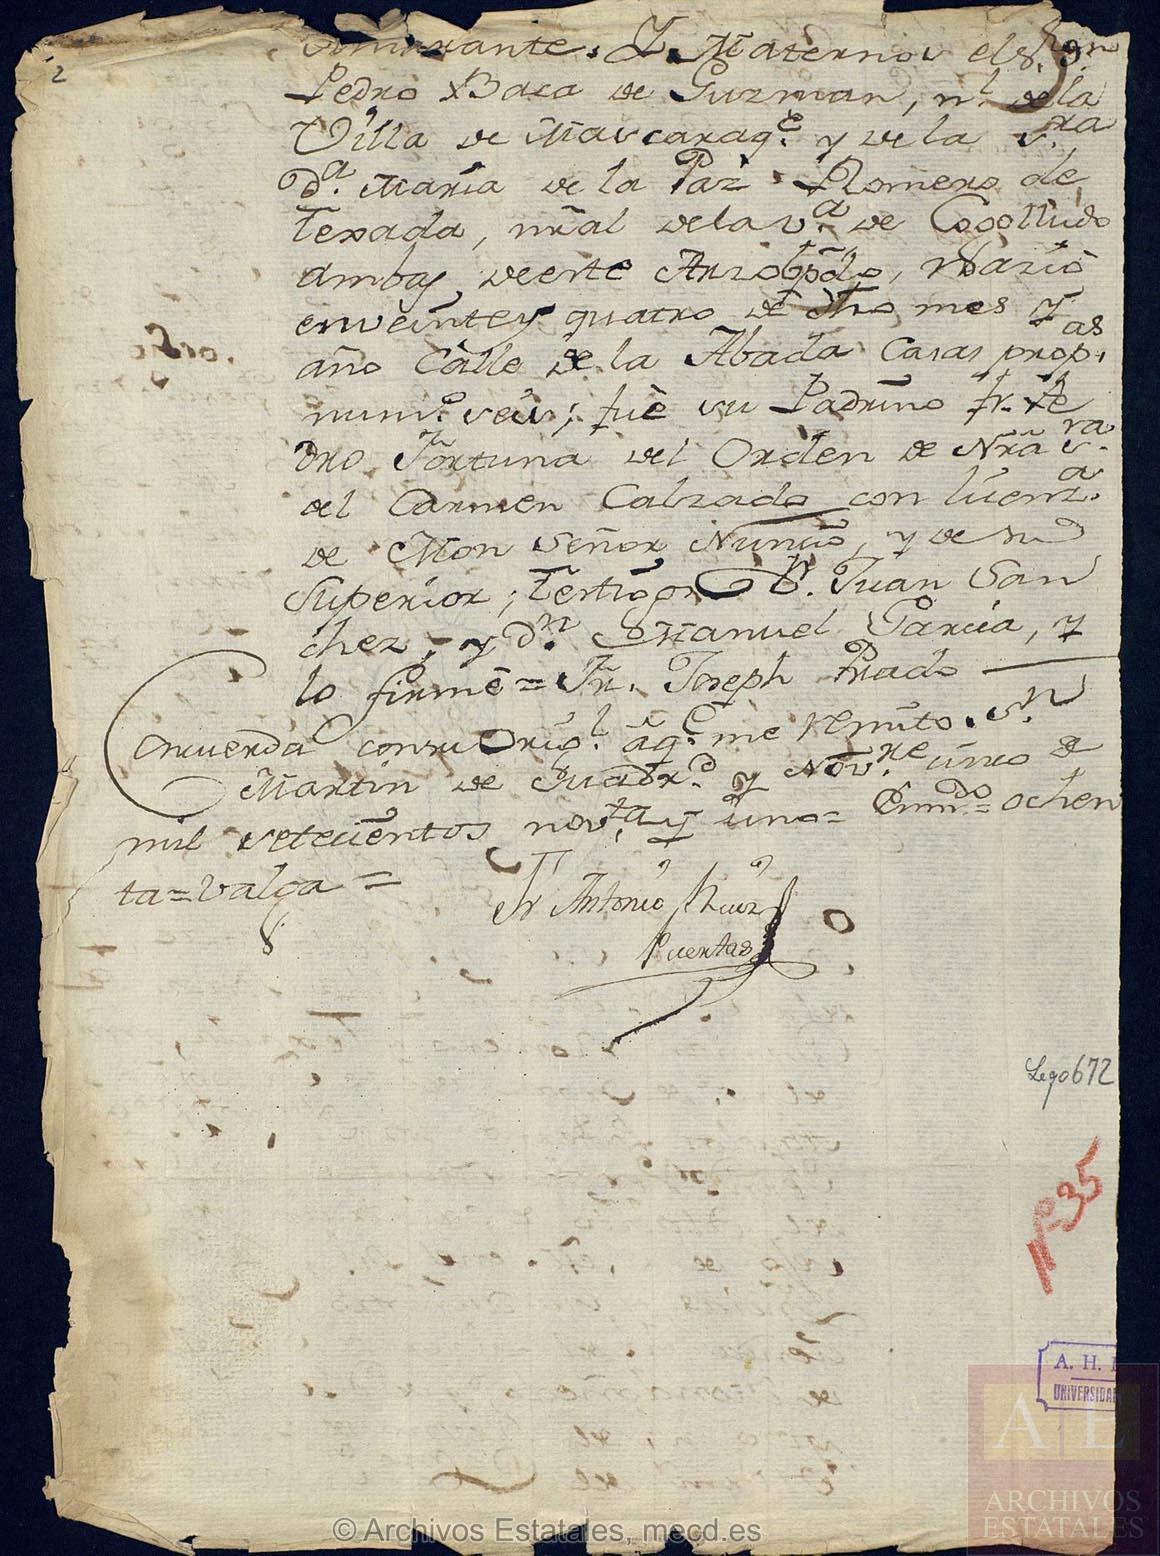 2
Almirante. Y Maternos el S.r D.n
Pedro Baca de Guzman, n.l de la
Villa de Mascaraq.e y de la S.ra
D.a Maria de la Paz Romero de
Texada, nral de la v.a de Cogolludo
ambas de este Arzobpdo, nacio
en veinte y quatro de dho mes y
año Calle de la Abada Casas prop.as
num.o seis; fuè su Padrino fr. Pe
dro Fortuna del Orden de Nrã S.ra
del Carmen Calzado con licenz.a
de Mon Señor Nuncio, y de su
Superior; testigos D.n Juan San
chez, y d.n Manuel Garcia, y
lo firmè = Fr. Joseph Prado
Concuerda con su Orig.l âq.e me remito. S.n
Martin de Quadr.d y Nov.re unco de
mil setecientos nov.ta y uno = Enm.do = ochen
ta = Valga =
Fr Antonio Ruiz
Puertas
Lego 672
nº 35
A. H.
UNIVERSIDA
AE
ARCHIVOS
ESTATALES
© Archivos Estatales, mecd.es